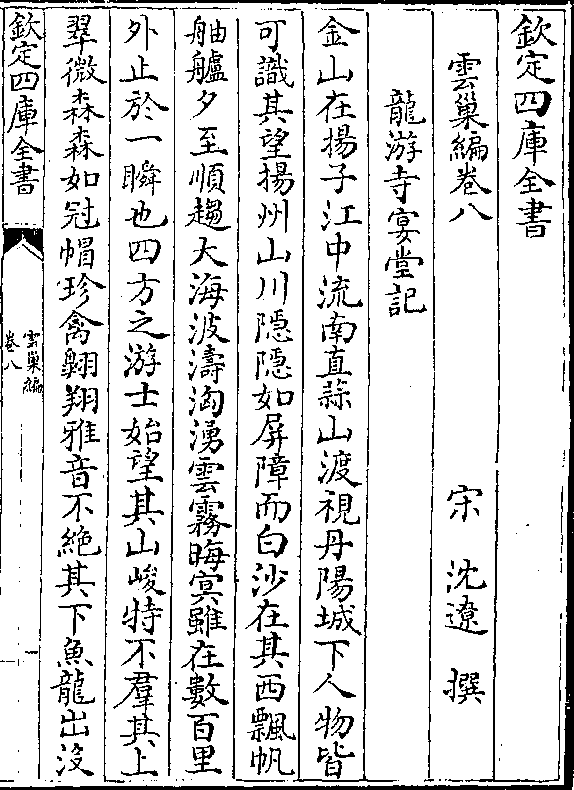 欽定四庫全書
雲巢編卷八
宋 沈遼 撰
龍游寺宴堂記
金山在揚子江中流南直蒜山渡視丹陽城下人物皆
可識其望揚州山川隠隠如屏障而白沙在其西飄帆
舳艫夕至順趨大海波濤洶湧雲霧晦冥雖在數百里
外止於一瞬也四方之游士始望其山峻特不羣其上
翠微森森如冠帽珍禽翺翔雅音不絶其下魚龍出没
欽定四庫全書
雲巢編
卷八